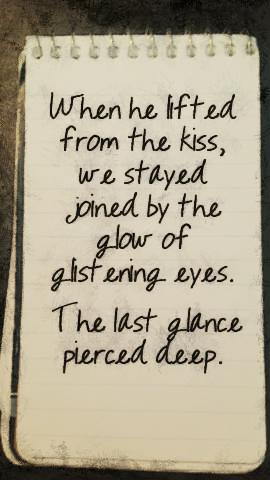 When he lifted
from the kiss,
we stayed
joined by the
glow of
glistening eyes.
The last glance
pierced deep.